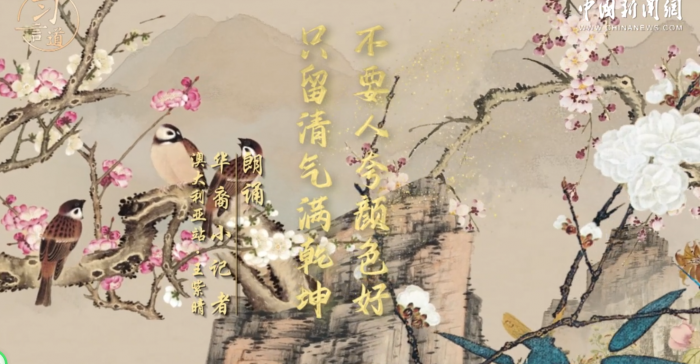 不要人夸颜色好
只留清气满乾坤
朗诵
华裔小记者
澳大利亚站 王紫晴
习言道
中国新闻網
WWW.CHINANEWS.COM